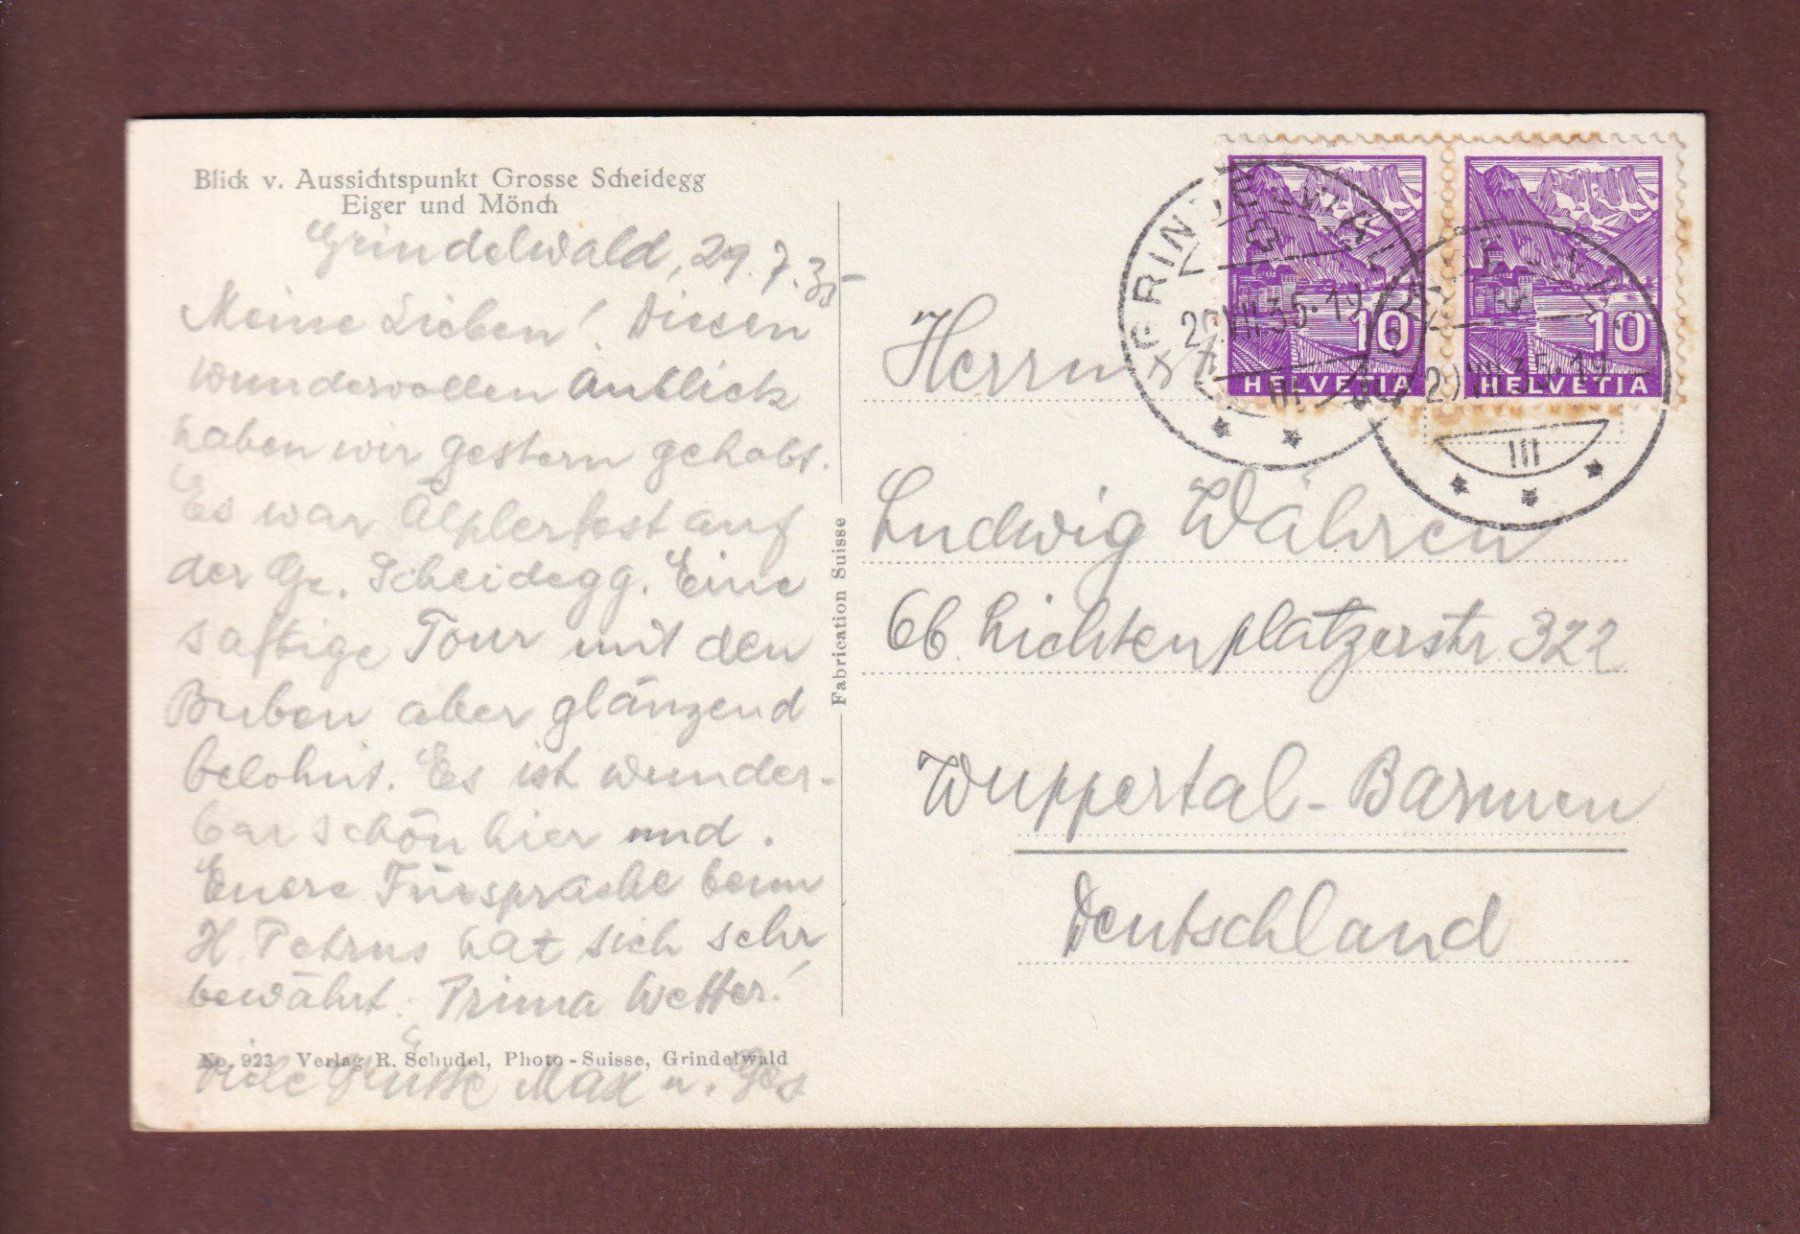 Blick v. Aussichtspunkt Grosse Scheidegg
Eiger und Mönch
Grindelwald, 29.7.35
Meine Lieben! Diesen
wundervollen Anblick
haben wir gestern gehabt.
Es war Älplerfest auf
der Gr. Scheidegg. Eine
saftige Tour mit den
Buben aber glänzend
belohnt. Es ist wunder-
bar schön hier und.
Euere Fürsprache beim
H. Petrus hat sich sehr
bewährt. Prima Wetter!
No. 923 Verlag R. Schudel, Photo-Suisse, Grindelwald
Viele Grüsse Max u.
Fabrication Suisse
GRINDELWALD
29.VII.35.19
III
10
HELVETIA
10
HELVETIA
29.VII.35.19
III
Herrn
Ludwig Währen
6b. Lichtenplatzerstr. 322
Wuppertal-Barmen
Deutschland